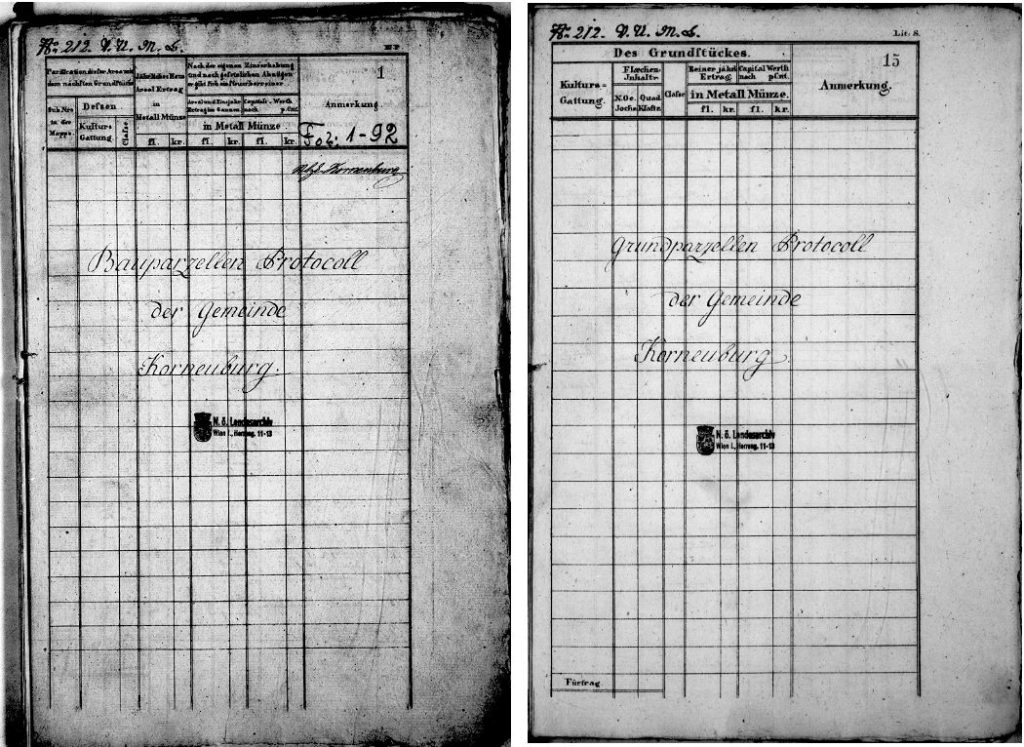 No. 212. V. U. M. B.
1
Parification dieser Area mit
dem nächsten Grundstücke
Sub. Nro.
in der
Mappe
Dessen
Kulturs-
Gattung
Classe
Jährlicher Rein
Areal Ertrag
in
Metall Münze
fl. kr.
Nach der eigenen Zinserhebung
in Metall Münze
fl. kr. fl. kr.
Anmerkung
Foz. 1-92
Korneuburg
Bauparzellen Protocoll
der Gemeinde
Korneuburg.
N. ö. Landesarchiv
Wien I., Herreng. 11-13
No. 212. V. U. M. B.
Lit: S.
Des Grundstückes.
15
Kulturs-
Gattung.
Flæchen-
Inhalt:
N. Oe.
Joche
Quad.
Klaftr
Classe
Reiner jährl.
Ertrag
Capital Werth
nach pCnt.
in Metall Münze.
fl. kr. fl. kr.
Anmerkung.
Grundparzellen Protocoll
der Gemeinde
Korneuburg.
N. ö. Landesarchiv
Wien I., Herreng. 11-13
Fürtrag